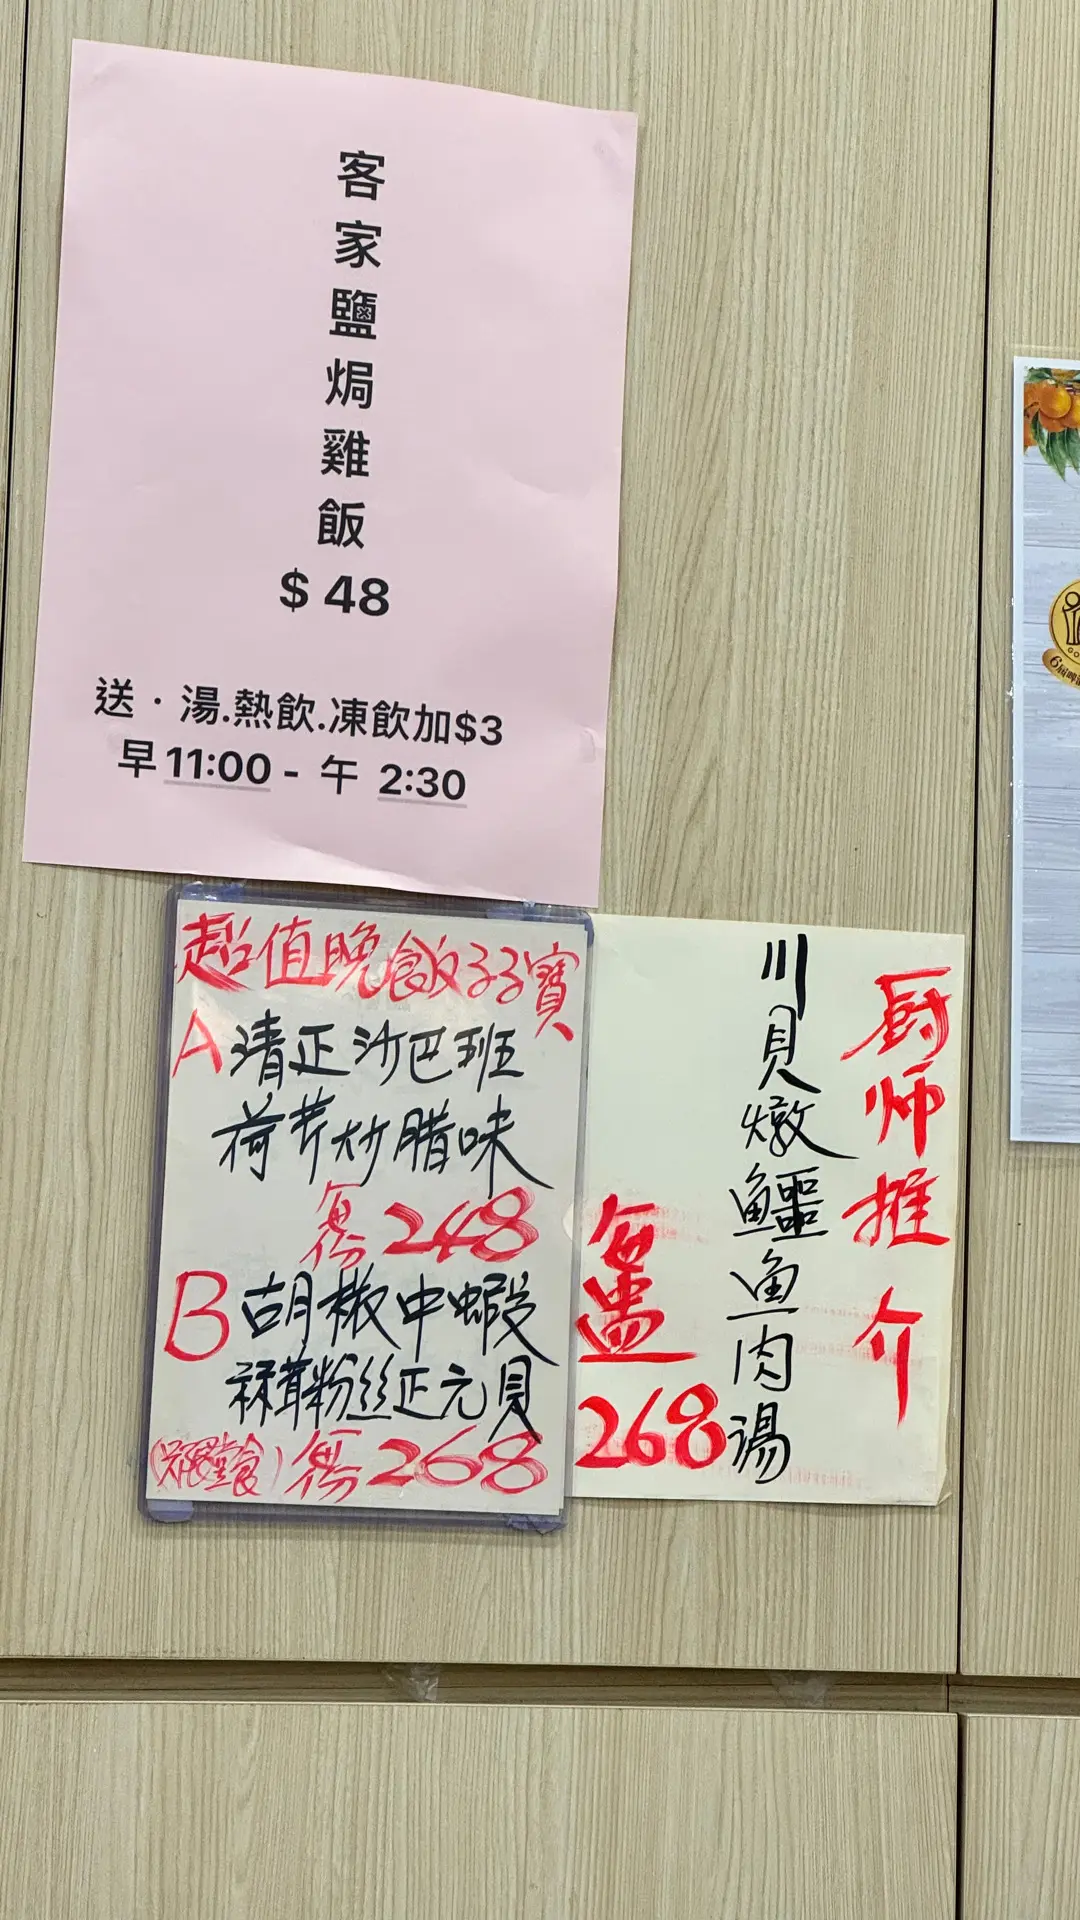 客家鹽焗雞飯
$48
送·湯.熱飲.凍飲加$3
早11:00 - 午 2:30
超值晚飯孖寶
A 清正沙巴班
荷芹炒腊味
每份248
B 胡椒中蝦
蒜茸粉丝正元貝
(只限堂食) 每份268
厨师推介
川貝燉鱷鱼肉湯
每盅
268